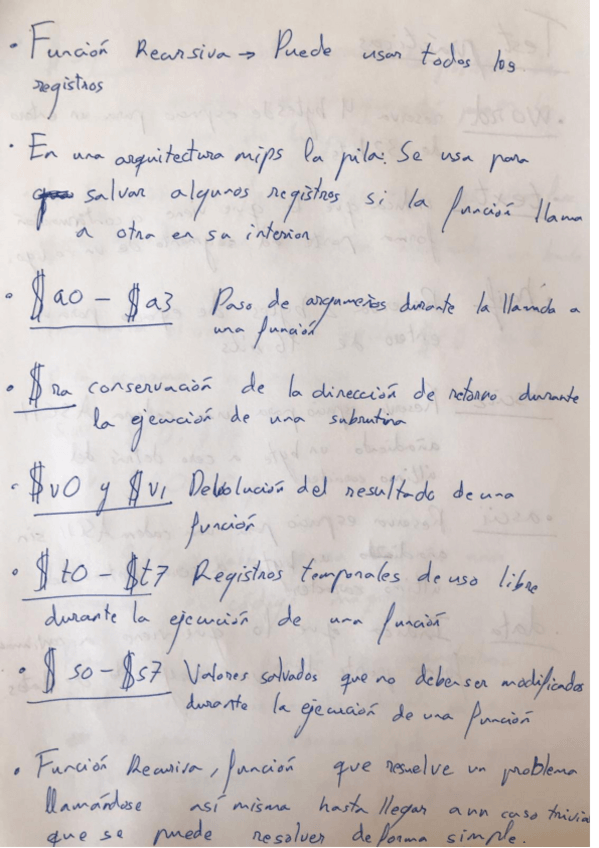 · Función Recursiva → Puede usar todos los
registros
· En una arquitectura mips la pila: Se usa para
salvar algunos registros si la función llama
a otra en su interior
· $a0 - $a3 Paso de argumentos durante la llamada a
una función
· $ra conservación de la dirección de retorno durante
la ejecución de una subrutina
· $v0 y $v1 Debolución del resultado de una
función
· $t0 - $t7 Registros temporales de uso libre
durante la ejecución de una función
· $s0 - $s7 Valores salvados que no deben ser modificados
durante la ejecución de una función
· Función Recursiva, función que resuelve un problema
llamándose así misma hasta llegar a un caso trivia
que se puede resolver de forma simple.